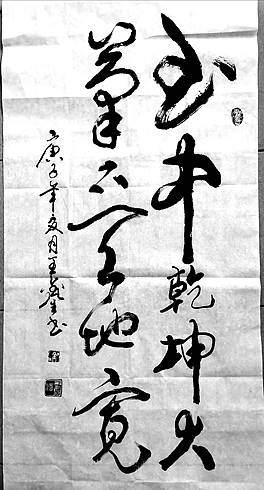 书中乾坤大
筆下天地宽
庚子年夏月王书